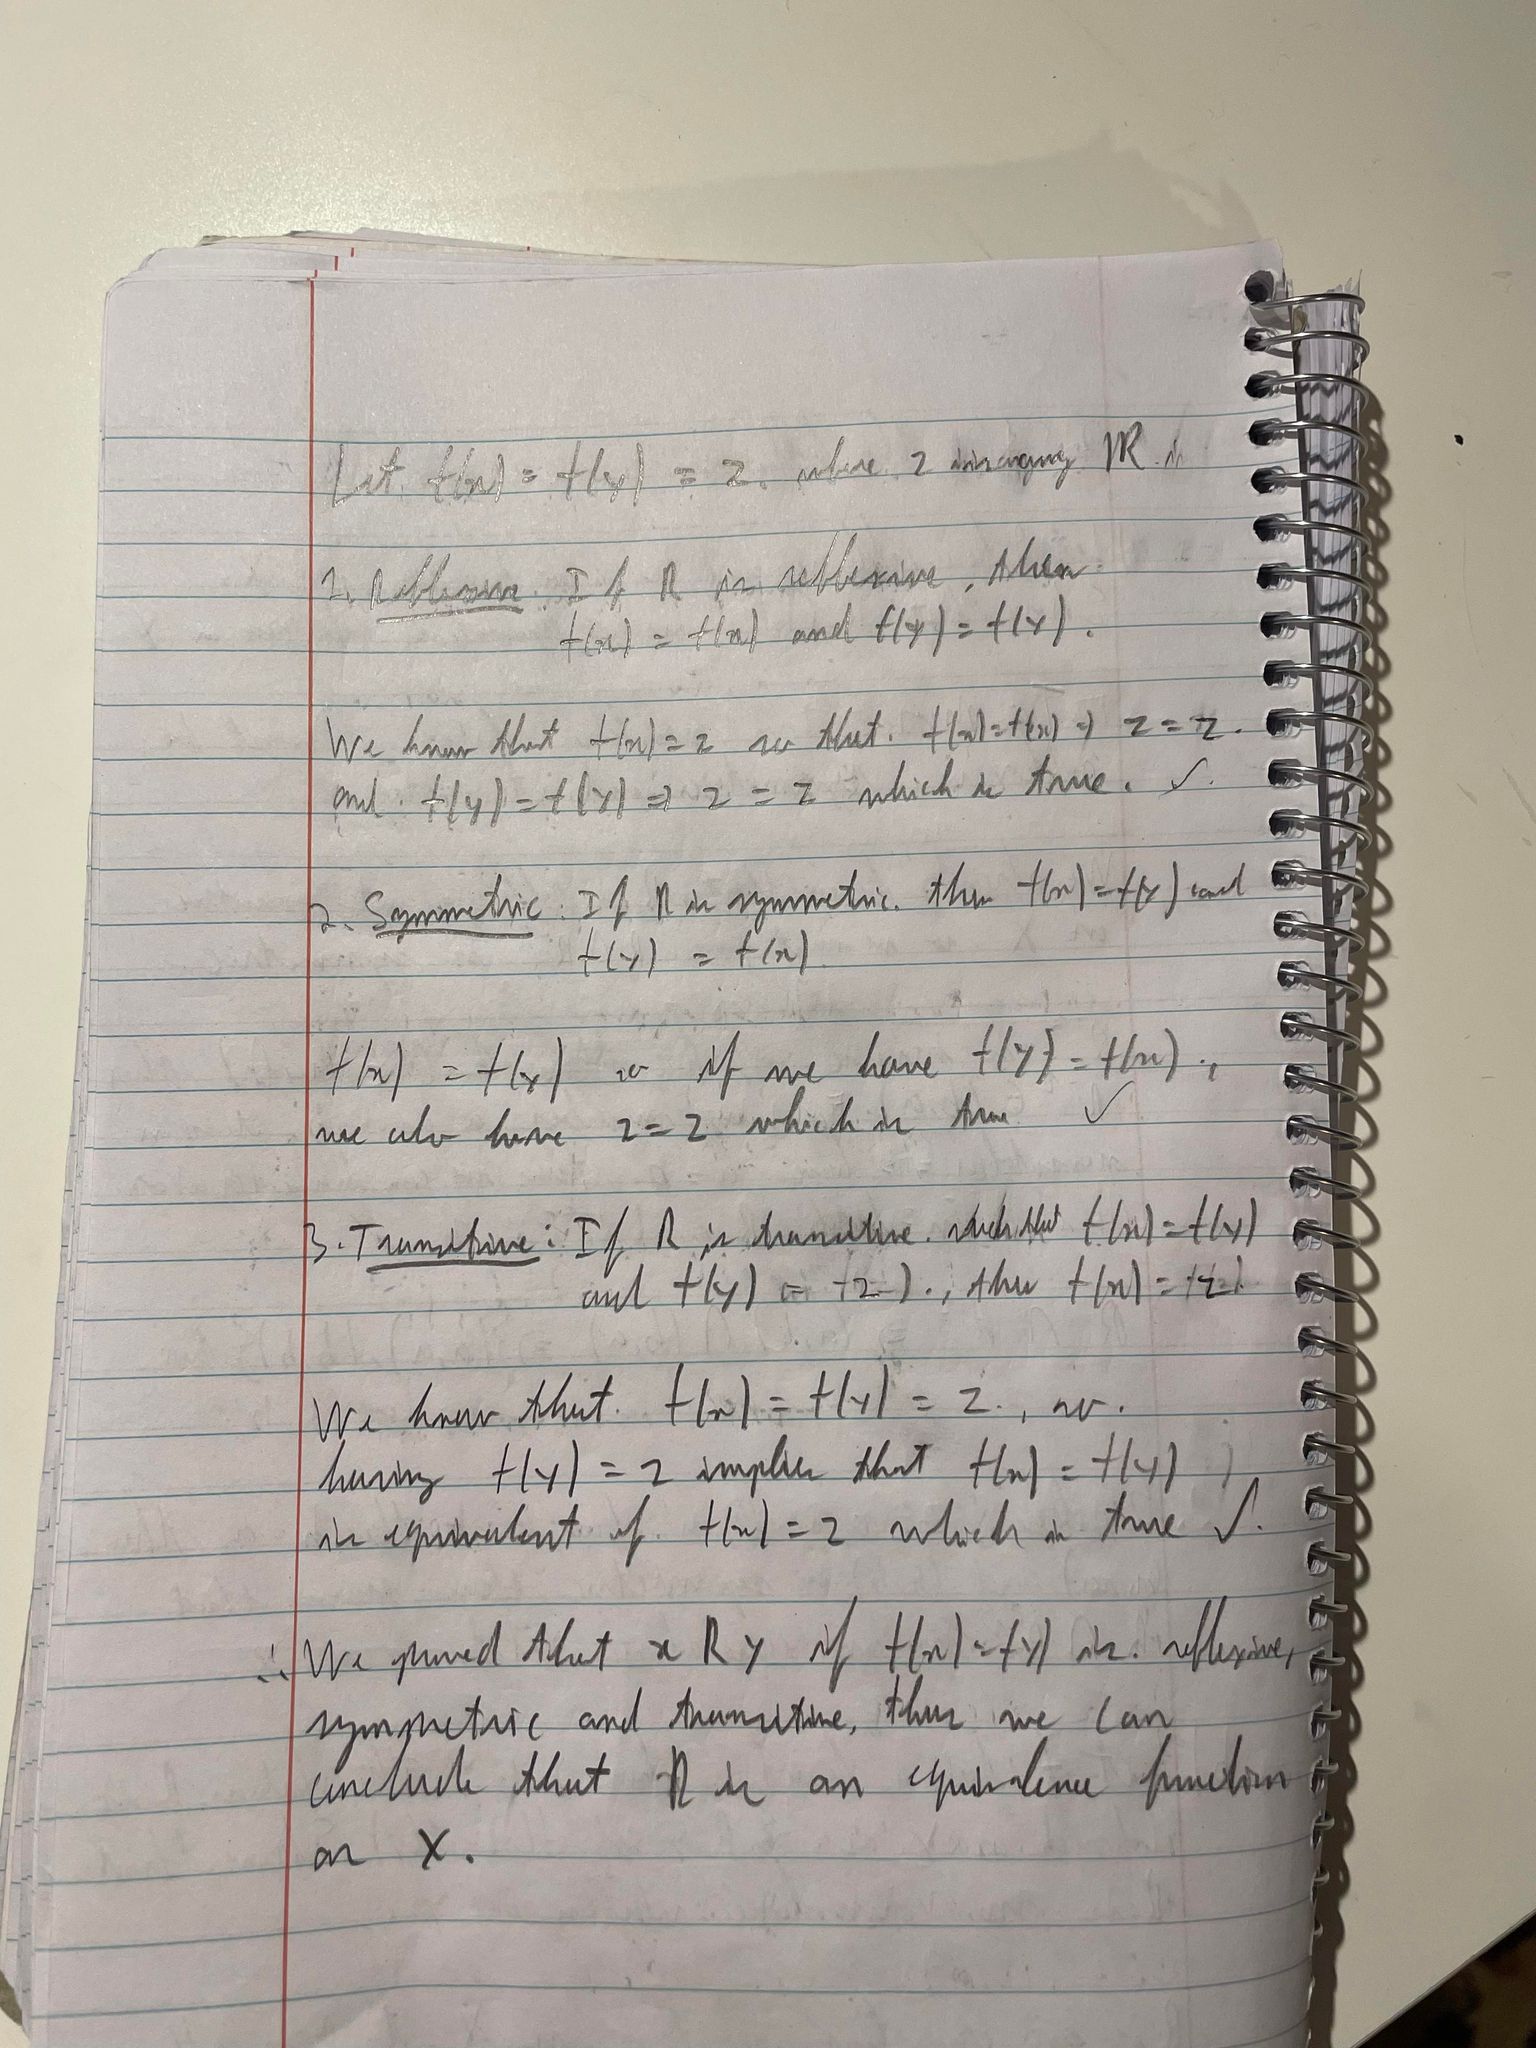 Let f(x) = f(y) = z. where z is in any ℝ.
1. Reflexive: If R is reflexive, then
f(x) = f(x) and f(y) = f(y).
We know that f(x) = z so that. f(x) = f(x) ⇒ z = z.
and. f(y) = f(y) ⇒ z = z which is true. ✓.
2. Symmetric: If R is symmetric. then f(x) = f(y) and
f(y) = f(x)
f(x) = f(y) so if we have f(y) = f(x).,
we also have z = z which is true ✓
3. Transitive: If R is transitive. such that f(x) = f(y)
and f(y) = f(z)., then f(x) = f(z)
We know that. f(x) = f(y) = z., so.
having f(y) = z implies that f(x) = f(y)
is equivalent of. f(x) = z which is true ✓.
∴ We proved that x R y if f(x) = f(y) is. reflexive,
symmetric and transitive, thus we can
conclude that R is an equivalence function
on X.